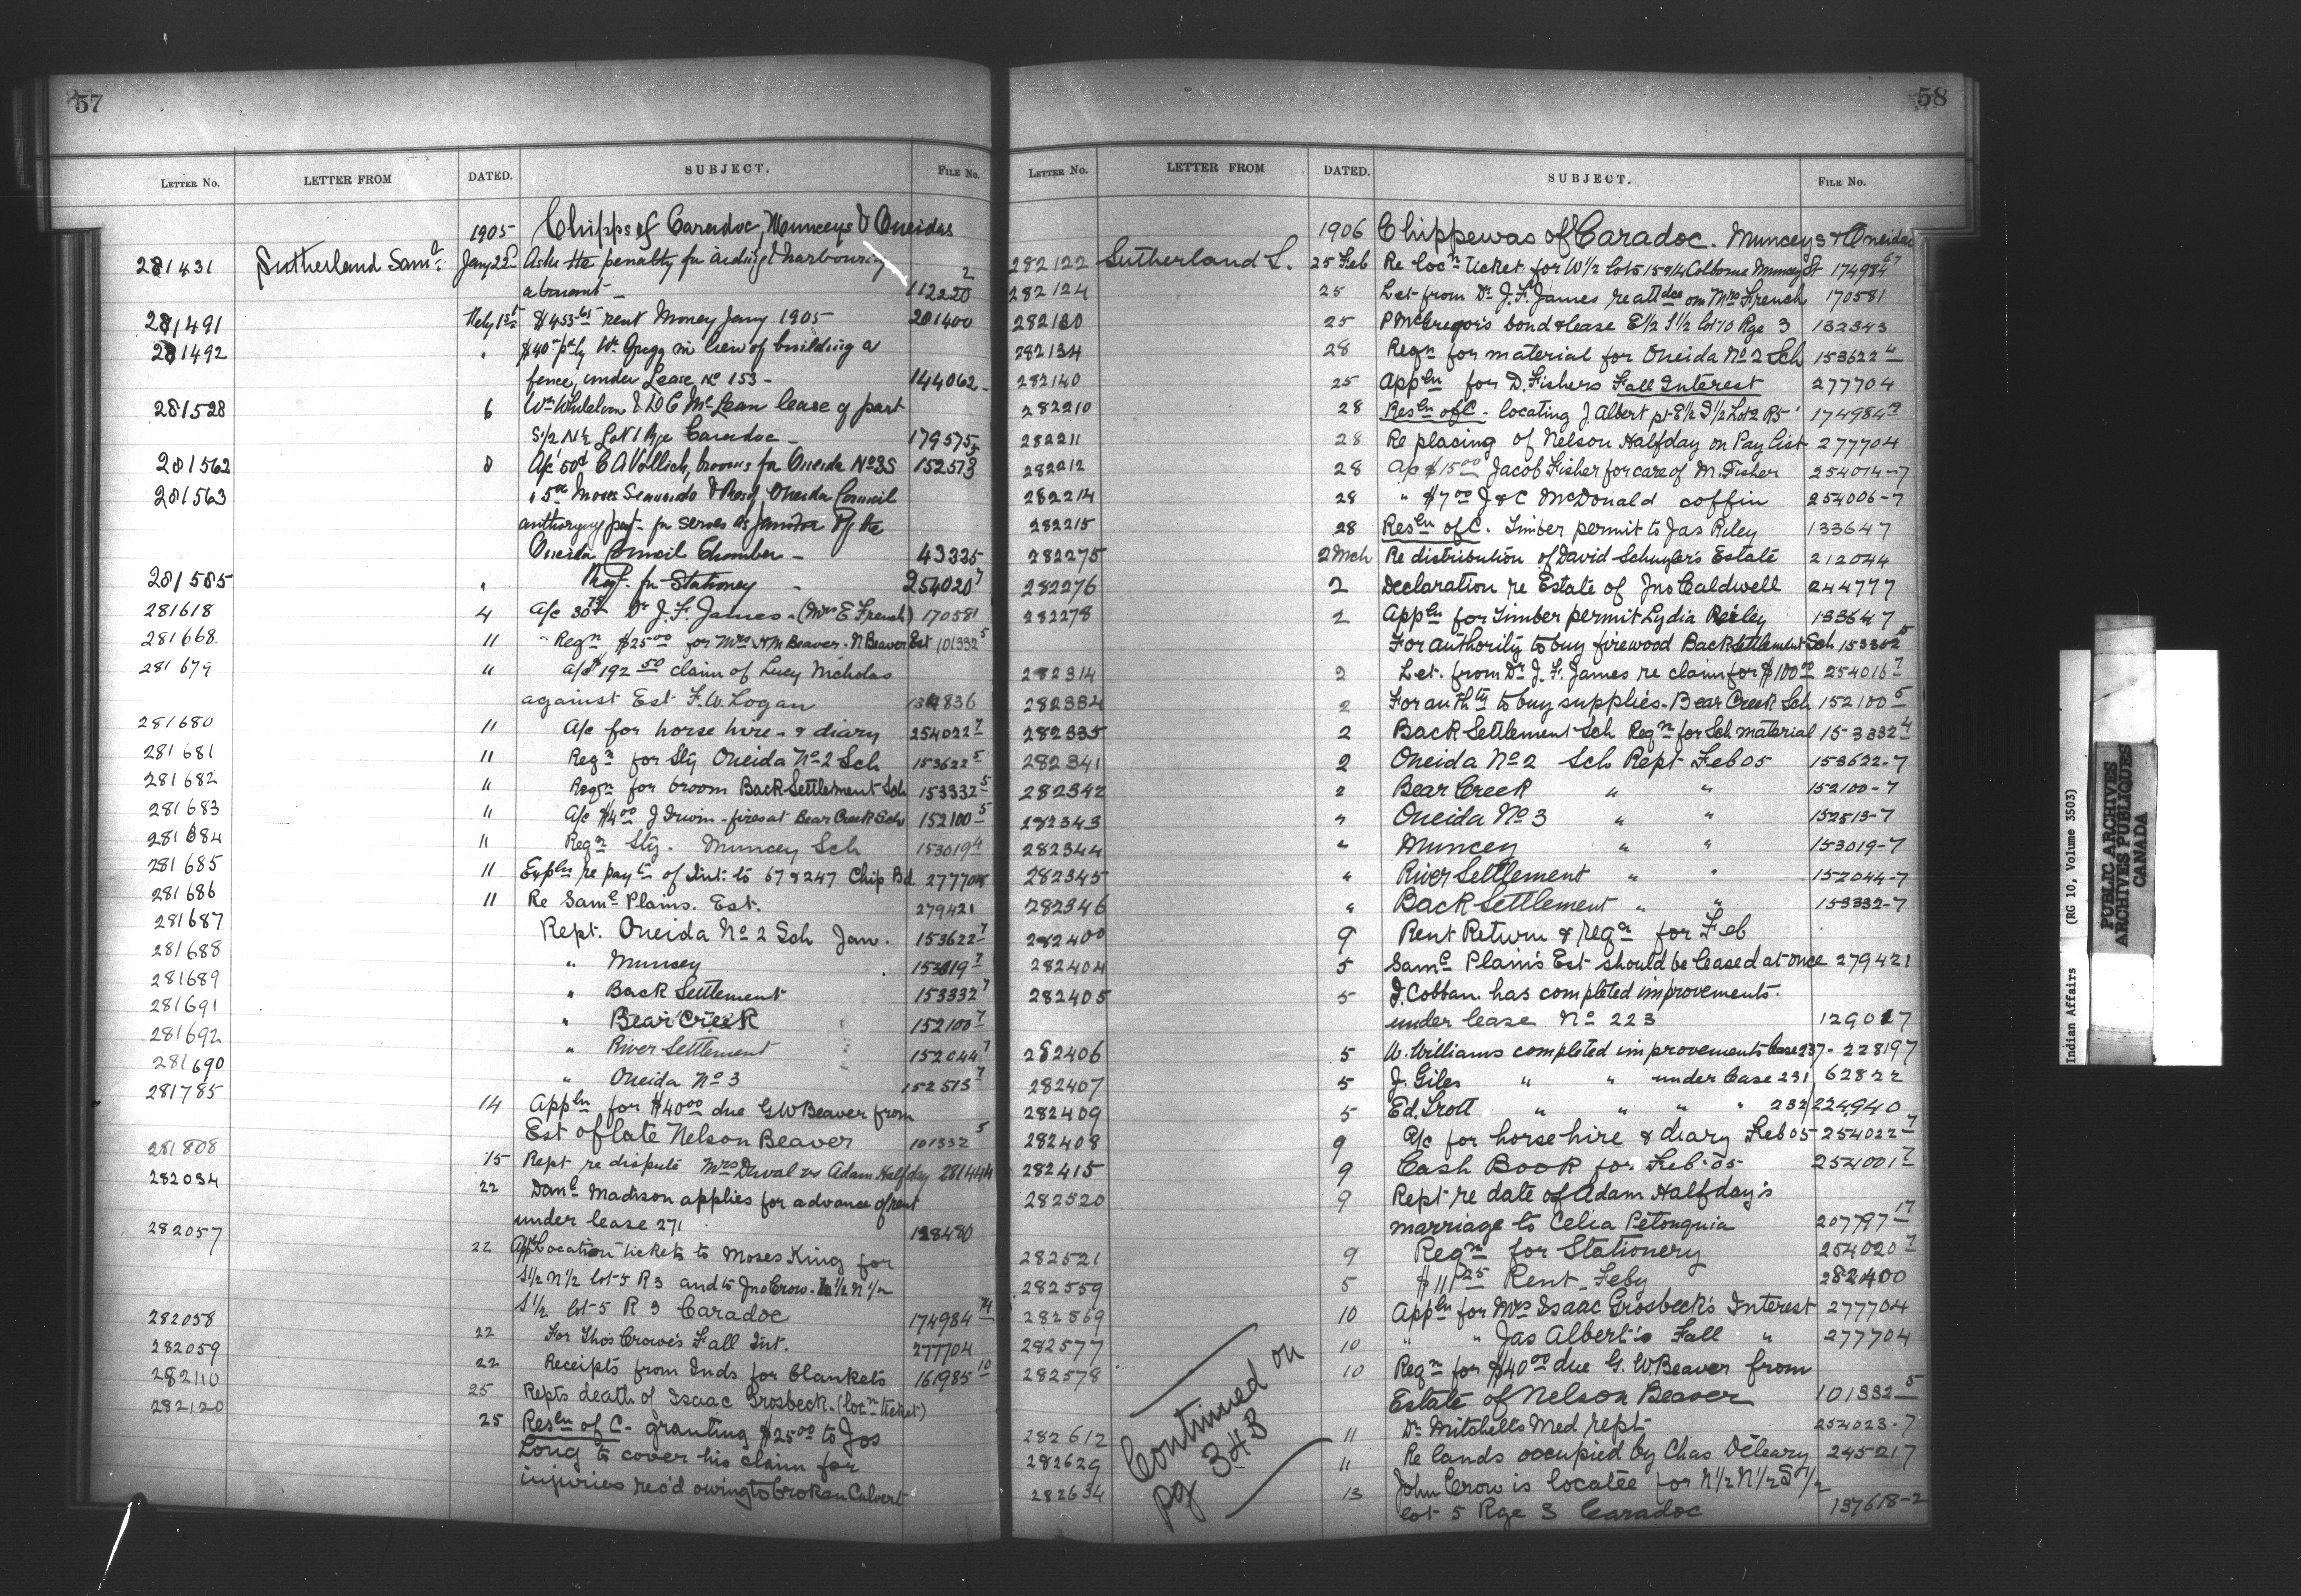 57
LETTER No. LETTER FROM DATED. SUBJECT. FILE No.
1905 Chipps of Caradoc, Munceys & Oneidas
281431 Sutherland Saml. Jany 22 Asks the penalty for aiding & harbouring
a truant 112220 2
281491 Feby 1st $453.65 rent Money Jany 1905 201400
281492 " $40 Wm Gregg in lieu of building a
fence, under Lease No 153 - 144062
281528 6 & D C McLean lease of part
S1/2 N1/2 Lot 1 Rge Caradoc - 179575
281562 8 A/c 50c C A Vollick, brooms for Oneida No 3 S 152513 5
281563 Moses Seauendo & Oneida Council
authorizing payt for serves as Janitor of the
Oneida Council Chamber - 43335
281585 " Reqt. for Stationery - 254020 7
281618 4 A/c 30 75 Dr J. F. James - (Mrs E French) 170581
281668 11 " Reqn $25.00 for Mrs N M Beaver - N Beaver Est 101332 5
281679 " a/c $192 50 claim of Lucy Nicholas
against Est F. W. Logan 134836
281680 11 A/c for horse hire - & diary 254022 7
281681 11 Reqn for Sty Oneida No 2 Sch 153622 5
281682 " Reqn for broom Back Settlement Sch 153332 5
281683 " A/c $4.00 J Irwin - fires at Bear Creek Sch 152100 5
281684 11 Reqn Sty. Muncey Sch 153019 4
281685 11 Expln re payt of Int: to 67 & 247 Chip Bd. 277704
281686 11 Re Saml Plains. Est. 279421
281687 Rept. Oneida No 2 Sch Jan. 153622 7
281688 " Muncey 153019 7
281689 " Back Settlement 153332 7
281691 " Bear Creek 152100 7
281692 " River Settlement 152044 7
281690 " Oneida No 3 152513 7
281785 14 Appln for $40.00 due G W Beaver from
Est of late Nelson Beaver 101332 5
281808 15 Rept re dispute Mrs Duval vs Adam Halfday 281444
282034 22 Danl Madison applies for advance of rent
under lease 271 128480
282057 22 Location tickets to Moses King for
S1/2 N1/2 lot 5 R 3 and to Jno Crow - N1/2 N1/2
S1/2 lot 5 R 3 Caradoc 174984 74
282058 22 For Thos Crowe's Fall Int. 277704
282059 22 Receipts from Inds for blankets 161985 10
282110 25 Repts death of Isaac Grosbeck - (locn ticket)
282120 25 Resln of C - granting $25.00 to Jos
Long to cover his claim for
injuries rec'd owing to broken Culvert
58
LETTER No. LETTER FROM DATED. SUBJECT. FILE No.
1906 Chippewas of Caradoc. Munceys & Oneidas
282122 Sutherland S. 25 Feb Re locn ticket for W1/2 lots 15 & 14 Colborne Muncey St 174984 67
282124 25 Let from Dr J. F. James re attdce on Mrs French 170581
282130 25 P McGregor's bond & lease E1/2 S1/2 lot 10 Rge 3 132343
282134 28 Reqn for material for Oneida No 2 Sch 153622 4
282140 25 Appln for D. Fishers Fall Interest 277704
282210 28 Resln of C - locating J. Albert pt E1/2 S1/2 Lot 2 R5 174984
282211 28 Re placing of Nelson Halfday on Pay list 277704
282212 28 a/c $15.00 Jacob Fisher for care of M. Fisher 254014-7
282214 28 " $7.00 J & C McDonald coffin 254006-7
282215 28 Resln of C. Timber permit to Jas Riley 133647
282275 2 Mch Re distribution of David Schuyler's Estate 212044
282276 2 Declaration re Estate of Jno Caldwell 244777
282278 2 Appln for Timber permit Lydia Reiley 133647
For authority to buy firewood Back Settlement Sch 153332 5
282314 2 Let. from Dr J. F. James re claim for $100.00 254016 7
282334 2 For authty to buy supplies - Bear Creek Sch 152100 5
282335 2 Back Settlement Sch Reqn for Sch material 153332 4
282341 2 Oneida No 2 Sch Rept Feb 05 153622-7
282342 2 Bear Creek " " 152100-7
282343 " Oneida No 3 " " 152513-7
282344 " Muncey " " 153019-7
282345 " River Settlement " " 152044-7
282346 " Back Settlement " " 153332-7
282400 9 Rent Return & reqn for Feb
282404 5 Saml Plain's Est should be leased at once 279421
282405 5 J. Cobban. has completed improvements.
under lease No 223 129017
282406 5 W. Williams completed improvements lease 237 - 228197
282407 5 J. Giles " " under lease 231 62822
282409 5 Ed. Trott " " " " 232 224940
282408 9 A/c for horse hire & diary Feb 05 254022 7
282415 9 Cash Book for Feb. 05 254001 7
282520 9 Rept re date of Adam Halfday's
marriage to Celia Petonquia 207797 17
282521 9 Reqn for Stationery 254020 7
282559 5 $111 25 Rent Feby 282400
282569 10 Appln for Mrs Isaac Grosbeck's Interest 277704
282577 10 " " Jas Albert's Fall " 277704
282578 10 Reqn for $40.00 due G. W Beaver from
Estate of Nelson Beaver 101332 5
282612 11 Dr Mitchell's Med rept 254023-7
282629 11 Re lands occupied by Chas Deleary 245217
282634 13 John Crow is locatee for N1/2 N1/2 S1/2
lot 5 Rge 3 Caradoc 137618-2
Continued on
pg 343
Indian Affairs (RG 10, Volume 3503)
PUBLIC ARCHIVES
ARCHIVES PUBLIQUES
CANADA